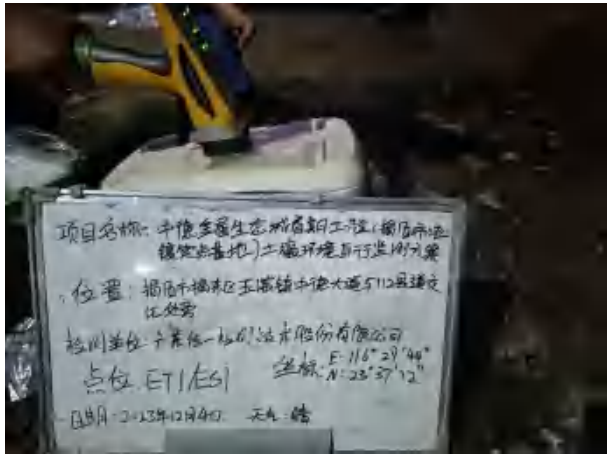 项目名称: 中德金属生态城首期工程(揭阳市
镇基地)土壤环境自行监测方案
位置: 揭阳市揭东区玉滘镇中德大道与112县道交
汇处旁
检测单位: 广东 技术股份有限公司
点位: ET1/ES1 坐标: E: 116°29'44"
N: 23°37'12"
日期: 2023年12月4日 天气: 晴